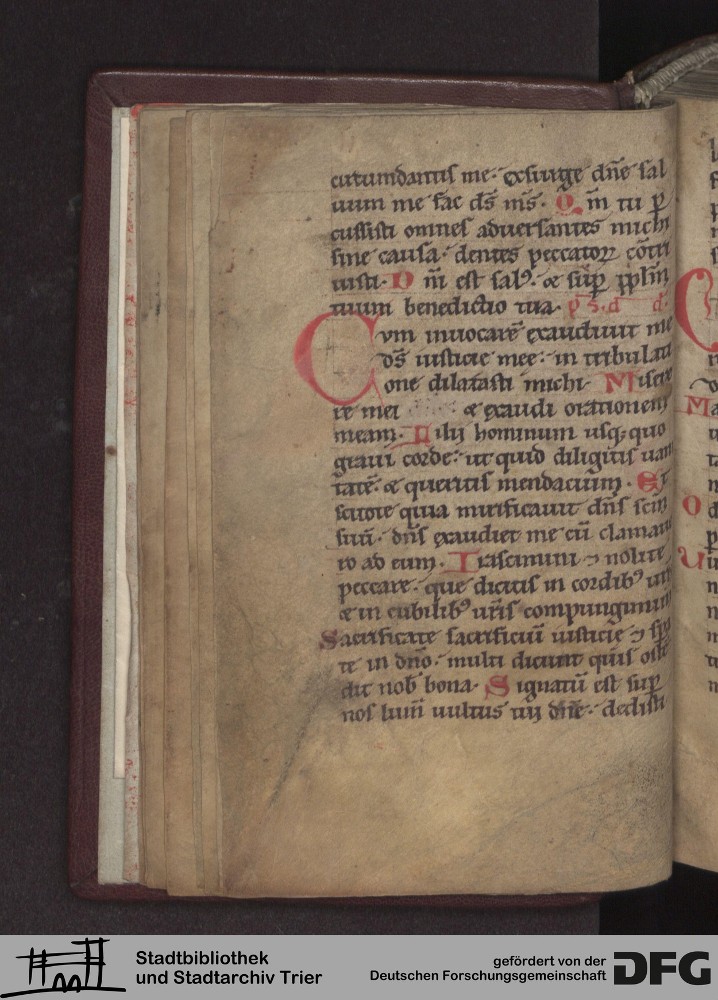 circumdantis me. exsurge dñe sal
uum me fac dš mš. Q m̄ tu p̱
cussisti omnes aduersantes michi
sine causa. dentes peccatoꝝ cōtri
uisti. D m̄ est salꝰ. & sup̱ pp̄lm̄
tuum benedictio tua. pš. d d.
Cvm inuocarē exaudiuit me
dš iusticie mee. in tribulati
one dilatasti michi Misere
re mei & exaudi orationem
meam. Filij hominum usq; quo
graui corde. ut quid diligitis uani
tatē. & queritis mendacium. Et
scitote q̄ua mirificauit dn̄s scm̄
suū. dn̄s exaudiet me cū clamaue
ro ad eum. Irascimini ⁊ nolite
peccare. que dicitis in cordibꝰ ur̄is
& in cubilibꝰ ur̄is compungimini
Sacrificate sacrificiū iusticie ⁊ spa
te in dn̄o. multi dicunt quis oste
dit nob bona. Signatū est sup̱
nos lum̄ uultus tuj dn̄e. dedisti
Stadtbibliothek
und Stadtarchiv Trier
gefördert von der
Deutschen Forschungsgemeinschaft DFG